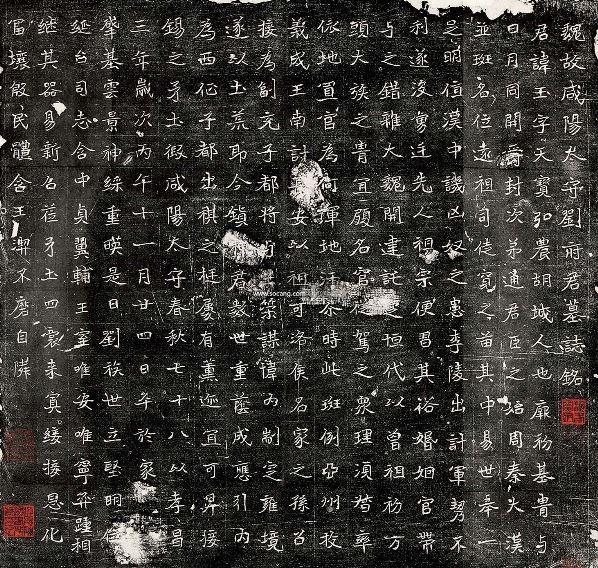 魏故咸陽太守劉府君墓誌銘
君諱玉字天寶弘農胡城人也厥初基胄與
日月同開爵封次弟通君臣之始周秦大漢
並班名位遠祖司徒寬之苗其中易世舉一
足明值漢中譏凶奴之患李陵出討軍勢不
利遂沒虜廷先人祖宗便習其俗婚姻官帶
與之錯雜大魏開建託定恒代以曾祖初万
頭大族之胄宜履名官從駕之衆理須督率
依地置官為何渾地汗尒時此班例亞州牧
義成王南討安以祖可洛侯名家之孫召
接為副充子都將守築謀諱內制定雍境
遂以土荒即令鎮君數世重蔭成應引內
為西征子都出祺之程慶有薰迩宜可昇接
錫之茅土假咸陽太守春秋七十八以孝昌
三年歲次丙午十一月廿四日卒於家
肇基雲景神綠重暎是日劉族世立堅明啟
延台司志含中貞翼輔王室唯安唯寧弈踵相
繼其器易新召莅茅土四裹来賓綏接恩化
畐壤殷民體含王潔不磨自隣
www.socang.com